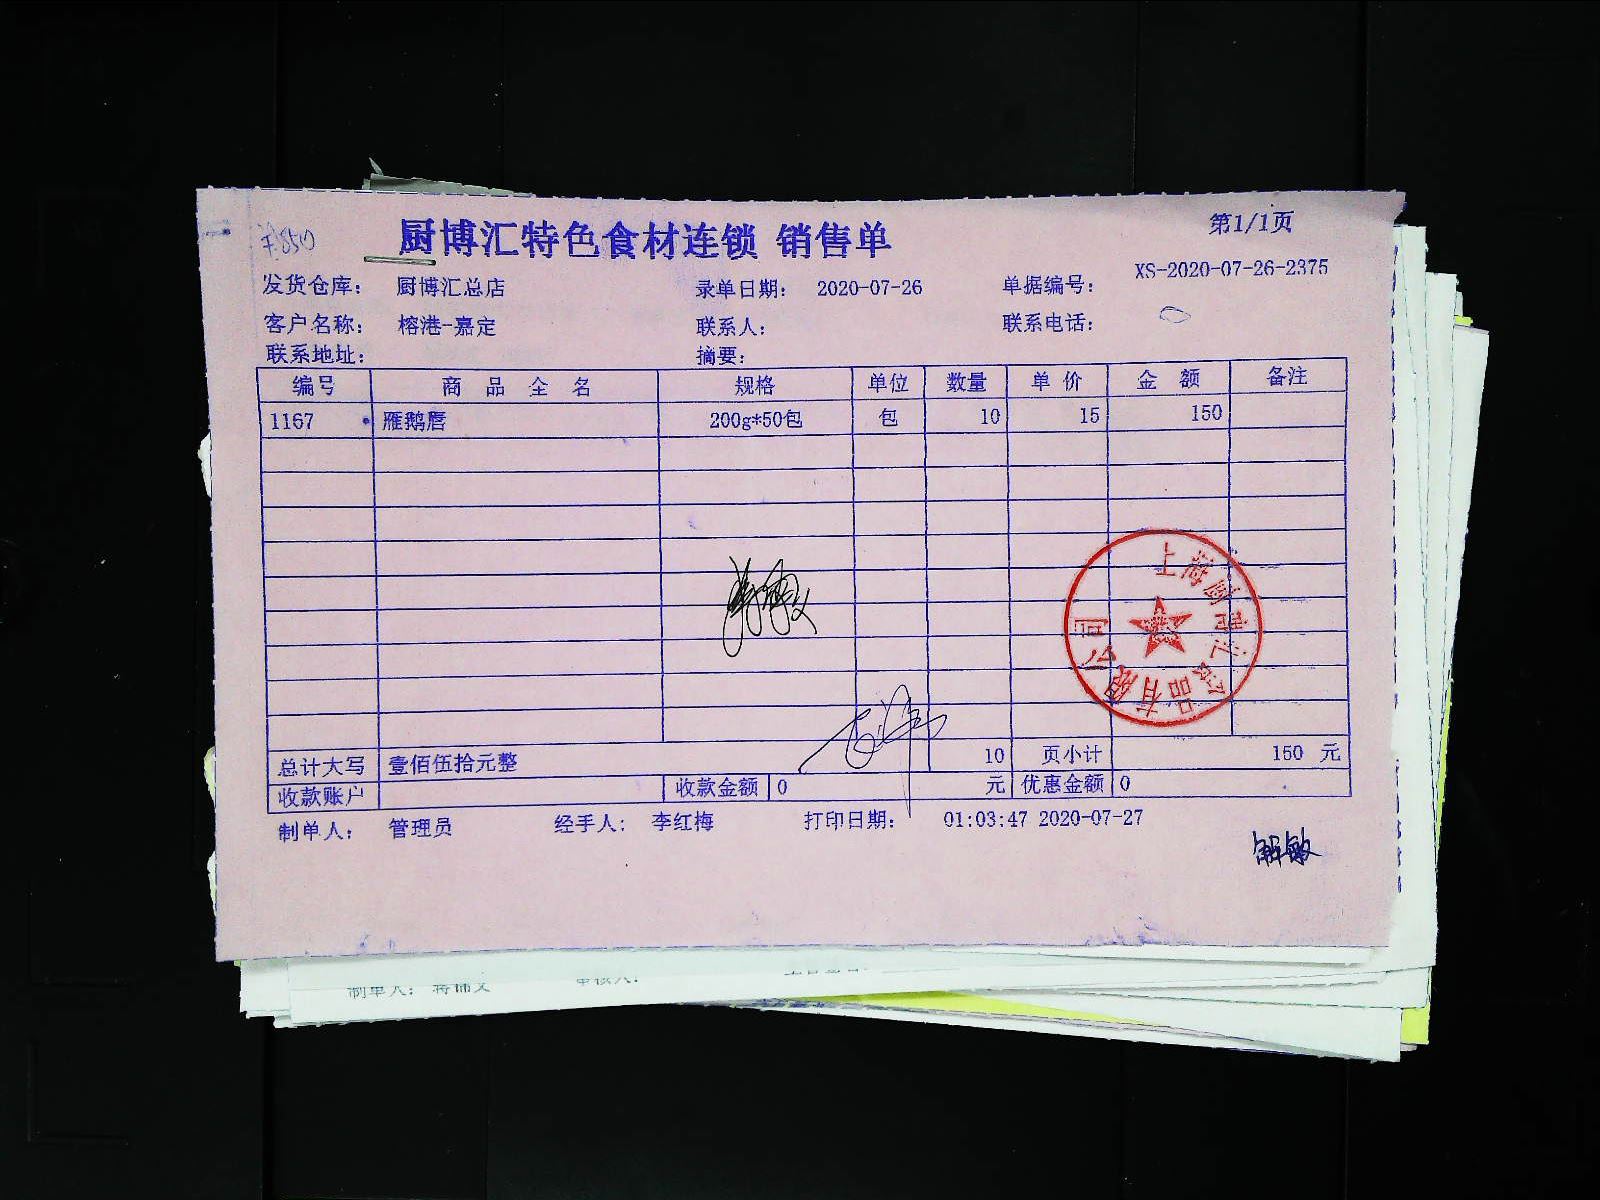 厨博汇特色食材连锁 销售单
第1/1页
发货仓库： 厨博汇总店 录单日期： 2020-07-26 单据编号： XS-2020-07-26-2375
客户名称： 榕港-嘉定 联系人： 联系电话：
联系地址： 摘要：
编号 商品全名 规格 单位 数量 单价 金额 备注
1167 雁鹅唇 200g*50包 包 10 15 150
上海厨博汇食品有限公司
总计大写 壹佰伍拾元整 10 页小计 150 元
收款账户 收款金额 0 元 优惠金额 0
制单人： 管理员 经手人： 李红梅 打印日期： 01:03:47 2020-07-27
解敏
制单人：